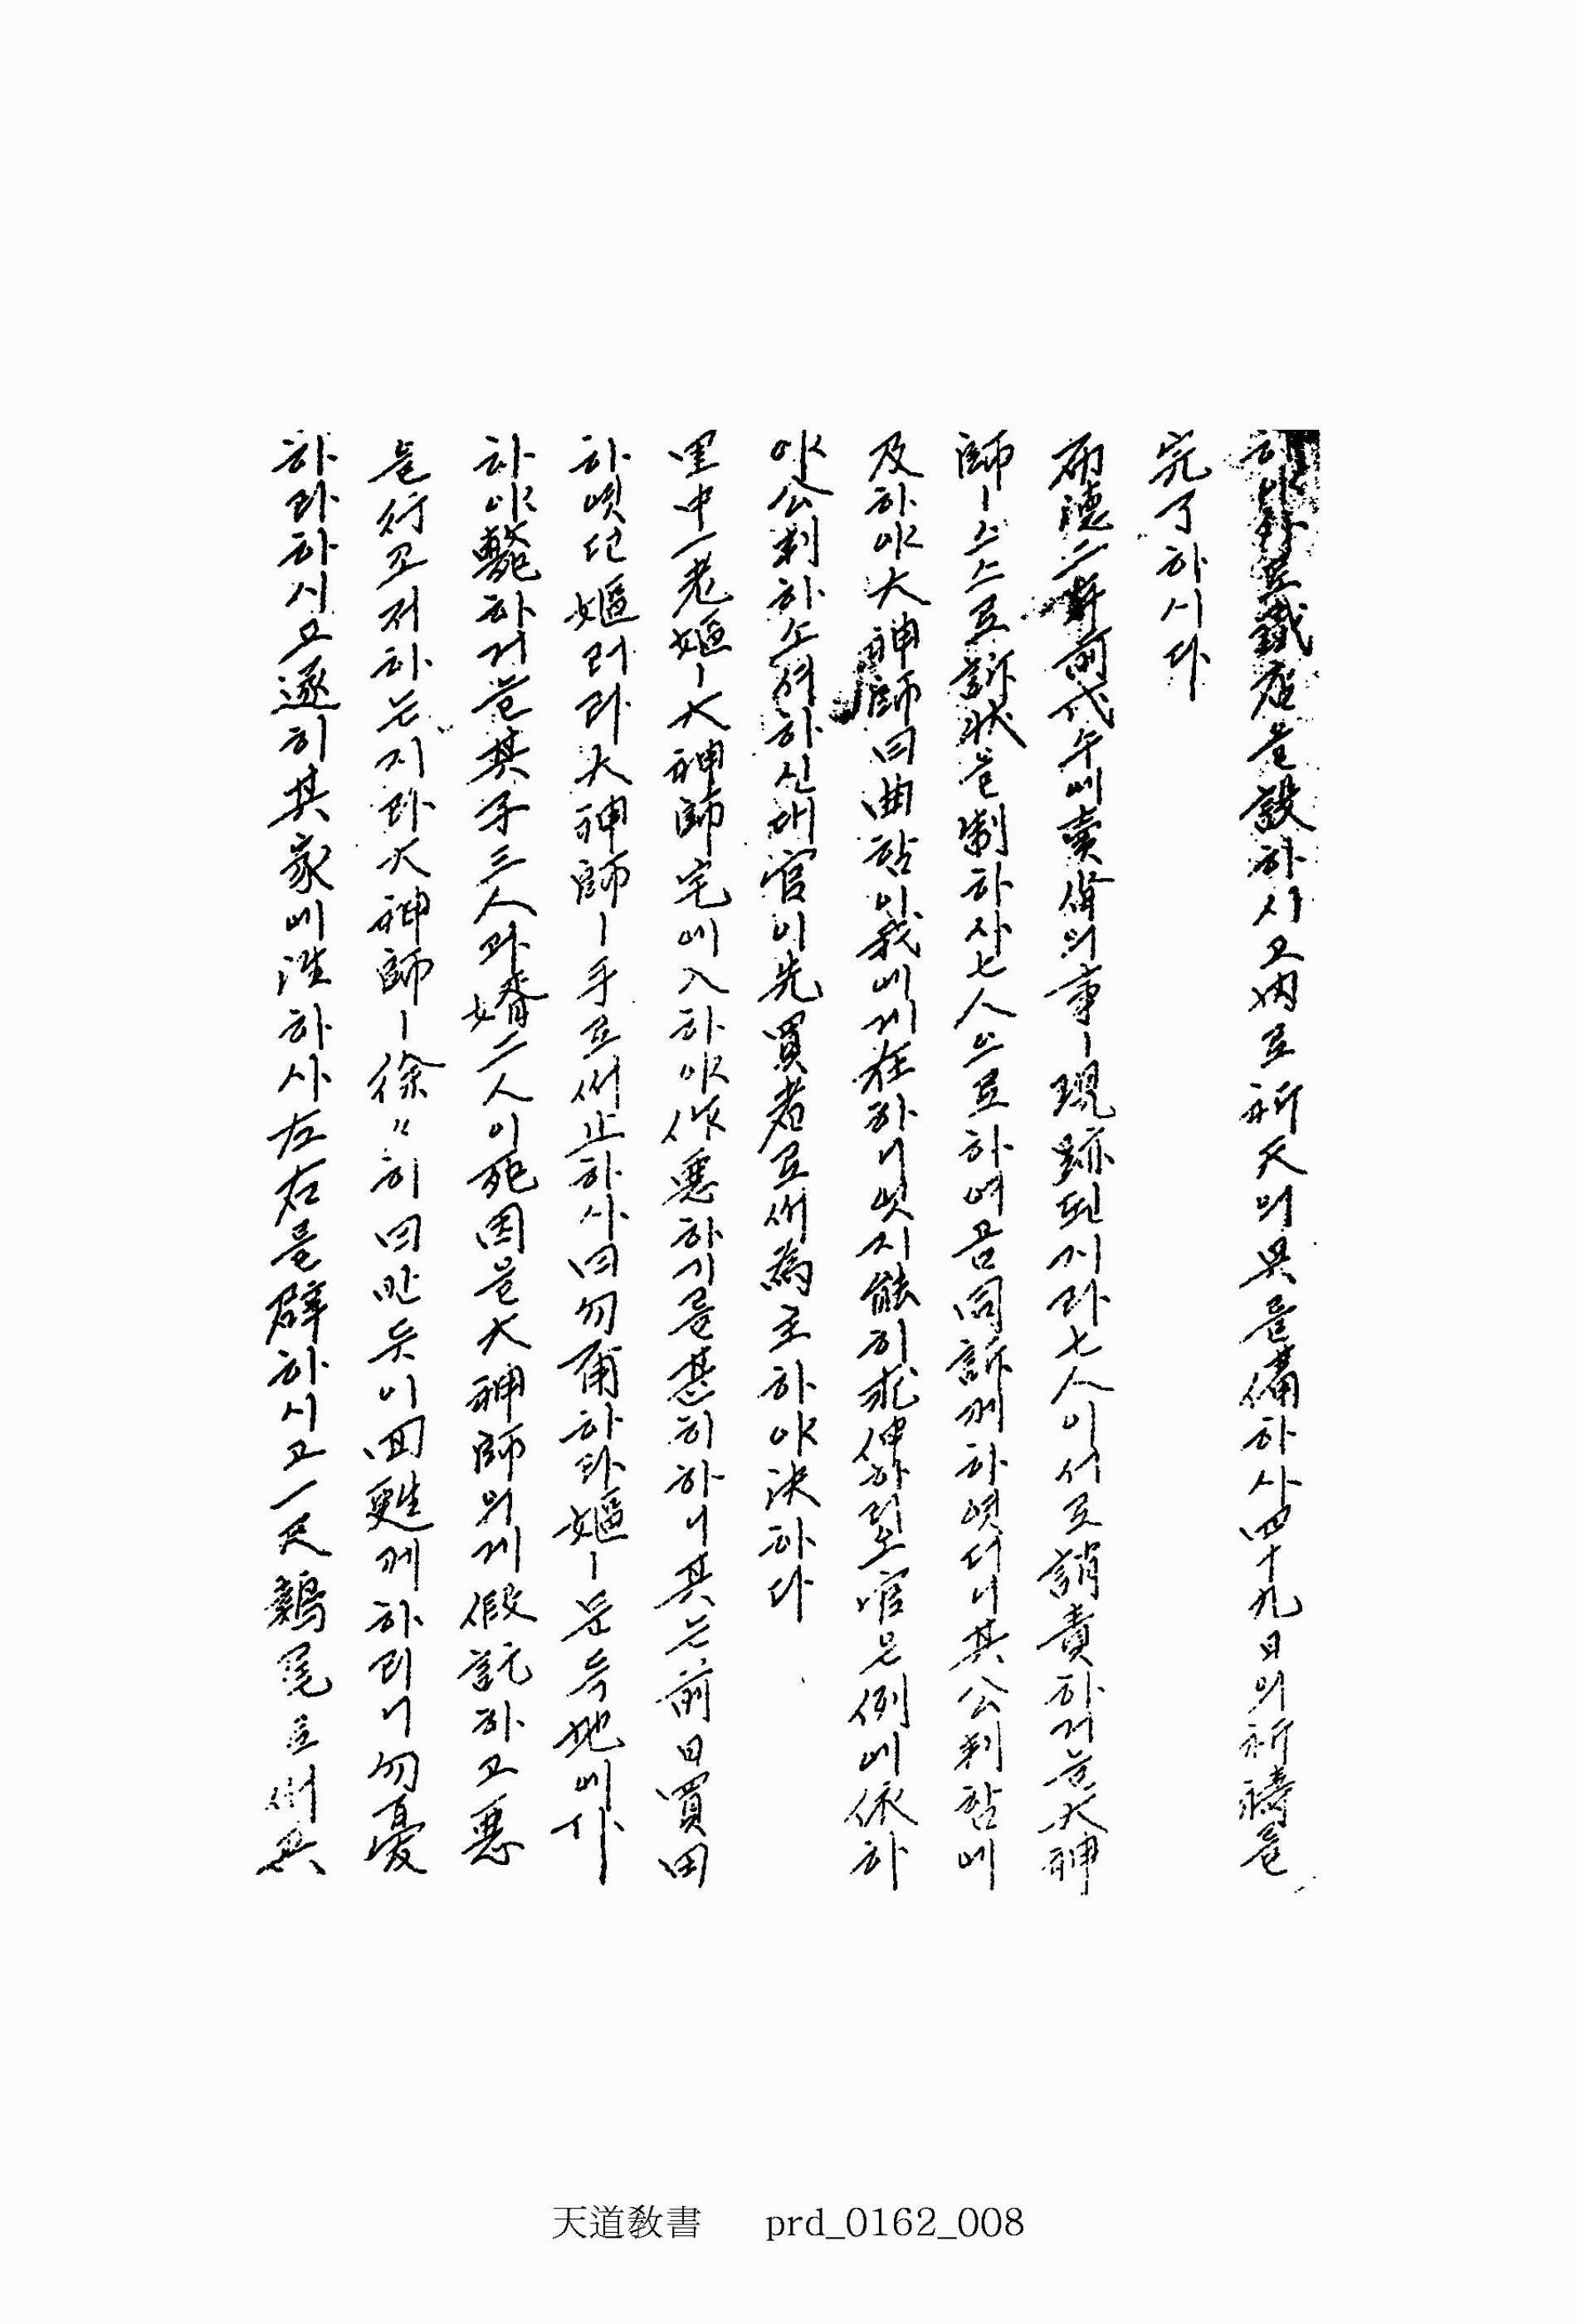 하야 外로 鐵店을 設하시고 內로 祈天의 具를 備하사 四十九日의 祈禱를
完了하시다
布德二年前 代午에 賣畓의 事ㅣ 現跡된지라 七人이 서로 誚責하거늘 大神
師ㅣ 스스로 訴狀을 製하사 七人으로 하여곰 同訴케 하엿더니 其公判함에
及하야 大神師曰 曲함이 我에게 在하니 엇지 能히 求伸하리요 官은 例에 依하
야 公判하소셔 하신대 官이 先買者로써 爲主하야 決하다
里中 一老嫗ㅣ 大神師宅에 入하야 作惡하기를 甚히 하니 其는 前日 買田
하엿던 嫗러라 大神師ㅣ 手로써 止하사 曰 勿爾하라 嫗ㅣ 문득 地에 仆
하야 斃하거늘 其子三人과 婿二人이 死因을 大神師의게 假託하고 惡
을 行코저 하는지라 大神師ㅣ 徐々히 曰 반듯이 回甦케 하리니 勿憂
하라 하시고 遂히 其家에 往하사 左右를 辟하시고 一尺 鷄尾로써 其
天道敎書 prd_0162_008